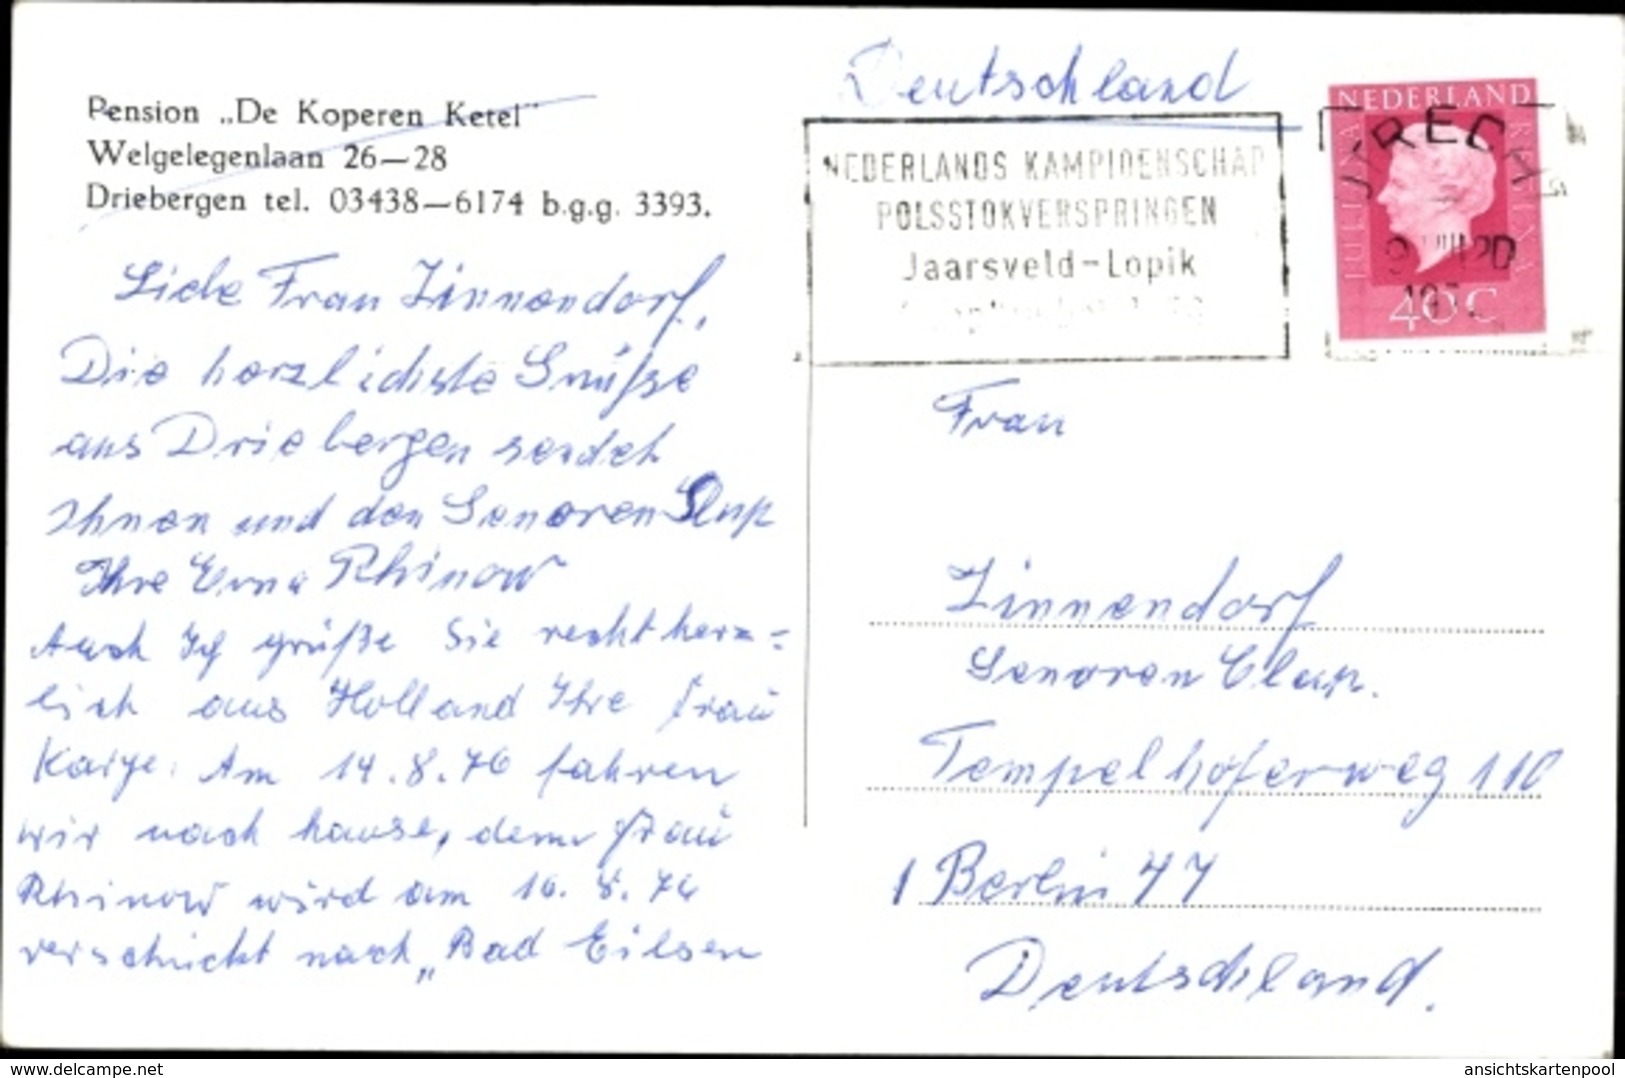 Pension „De Koperen Ketel"
Welgelegenlaan 26—28
Driebergen tel. 03438—6174 b.g.g. 3393.
Liebe Frau Zinnendorf,
Die herzlichste Grüße
aus Driebergen sendet
Ihnen und den Senoren Clup
Ihre Erna Rhinow
Auch Ich grüße Sie recht herz=
lich aus Holland Ihre Frau
Karge. Am 14.8.76 fahren
wir nach hause, denn Frau
Rhinow wird am 16.8.76
verschickt nach „Bad Eilsen
Deutschland
NEDERLANDS KAMPIOENSCHAP
POLSSTOKVERSPRINGEN
Jaarsveld-Lopik
NEDERLAND
JULIANA REGINA
40c
Frau
Zinnendorf
Senoren Clup.
Tempelhoferweg 110
1 Berlin 47
Deutschland.
www.delcampe.net
ansichtskartenpool